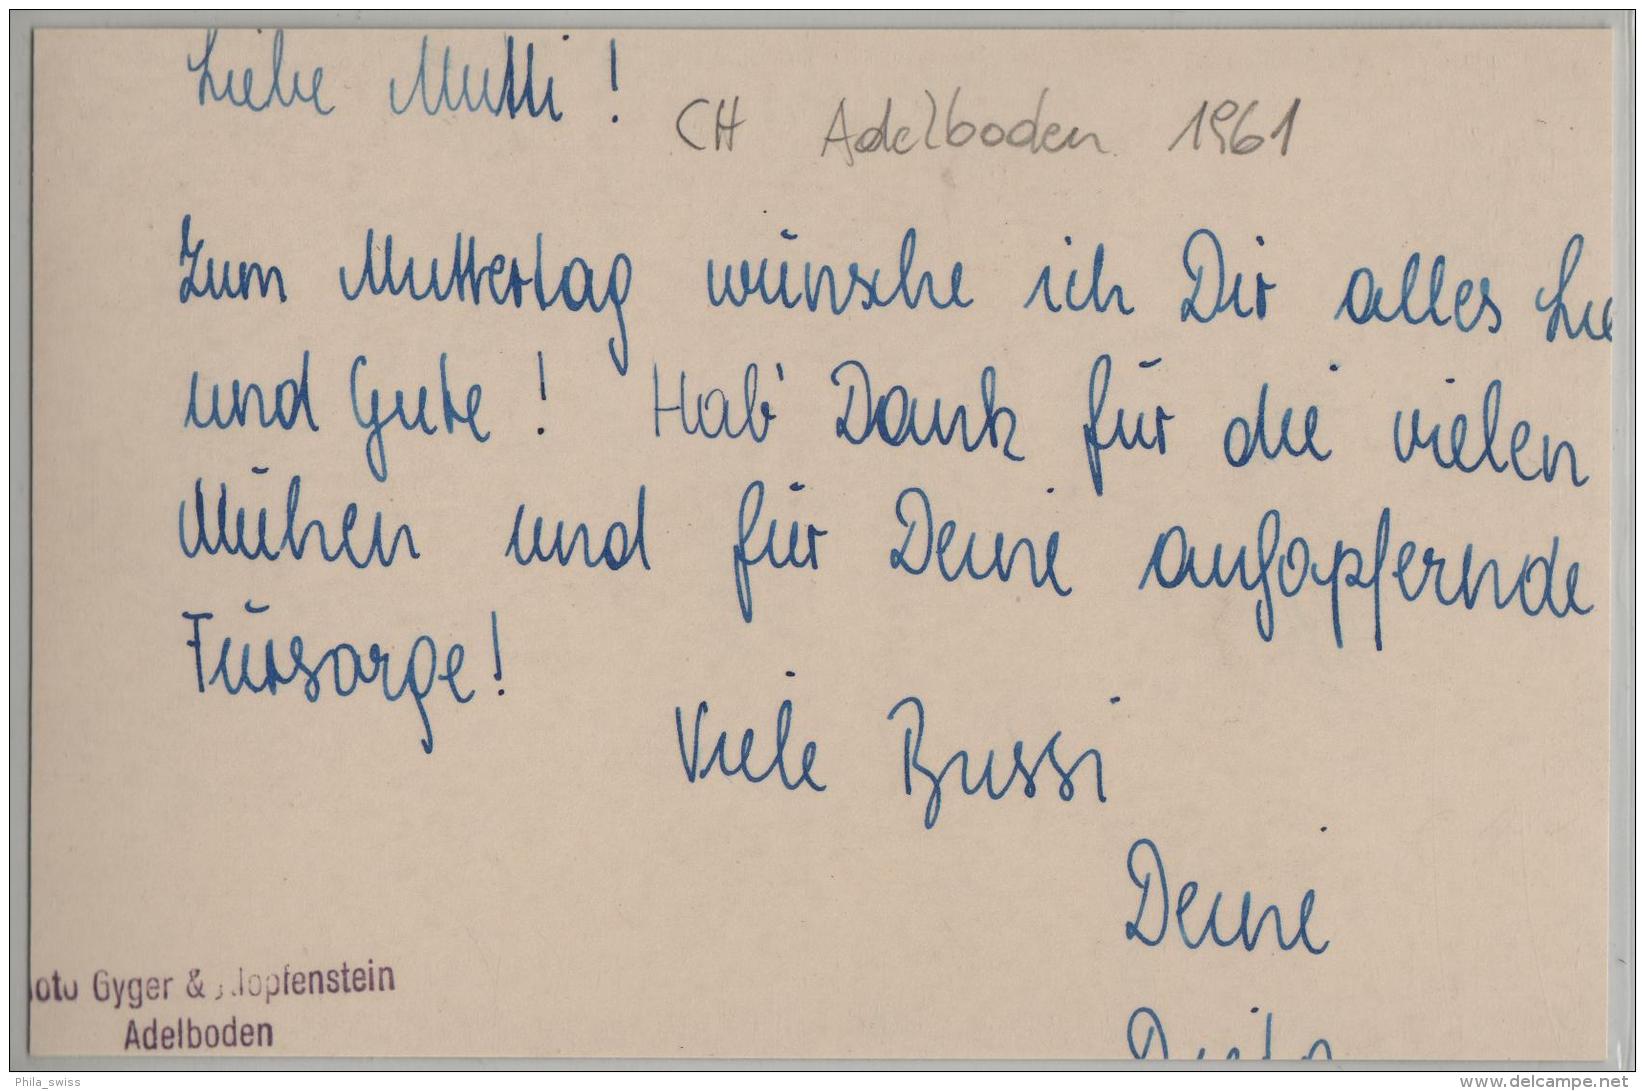 Liebe Mutti!
CH Adelboden 1961
Zum Muttertag wünsche ich Dir alles Lie
und Gute! Hab' Dank für die vielen
Mühen und für Deine aufopfernde
Fürsorge!
Viele Bussi
Deine
oto Gyger & Klopfenstein
Adelboden
Phila_swiss
www.delcampe.net